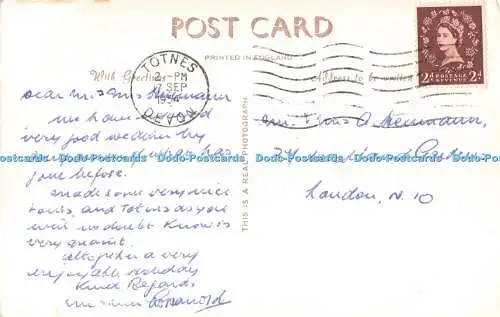 POST CARD
PRINTED IN ENGLAND
With Greetings
Address to be written
TOTNES
2 - PM
17 SEP
1954
DEVON
POSTAGE REVENUE
2d 2d
THIS IS A REAL PHOTOGRAPH
Dear Mr & Mrs
we have had
very good weather by
before.
made some very nice
tours, and Totnes as you
will no doubt know is
very quaint.
altogether a very
enjoyable holiday
Kind Regards.
Mr & Mrs
London, N. 10
Dodo-Postcards Dodo-Postcards Dodo-Postcards Dodo-Postcards Dodo-Postcards Dodo-Postcards